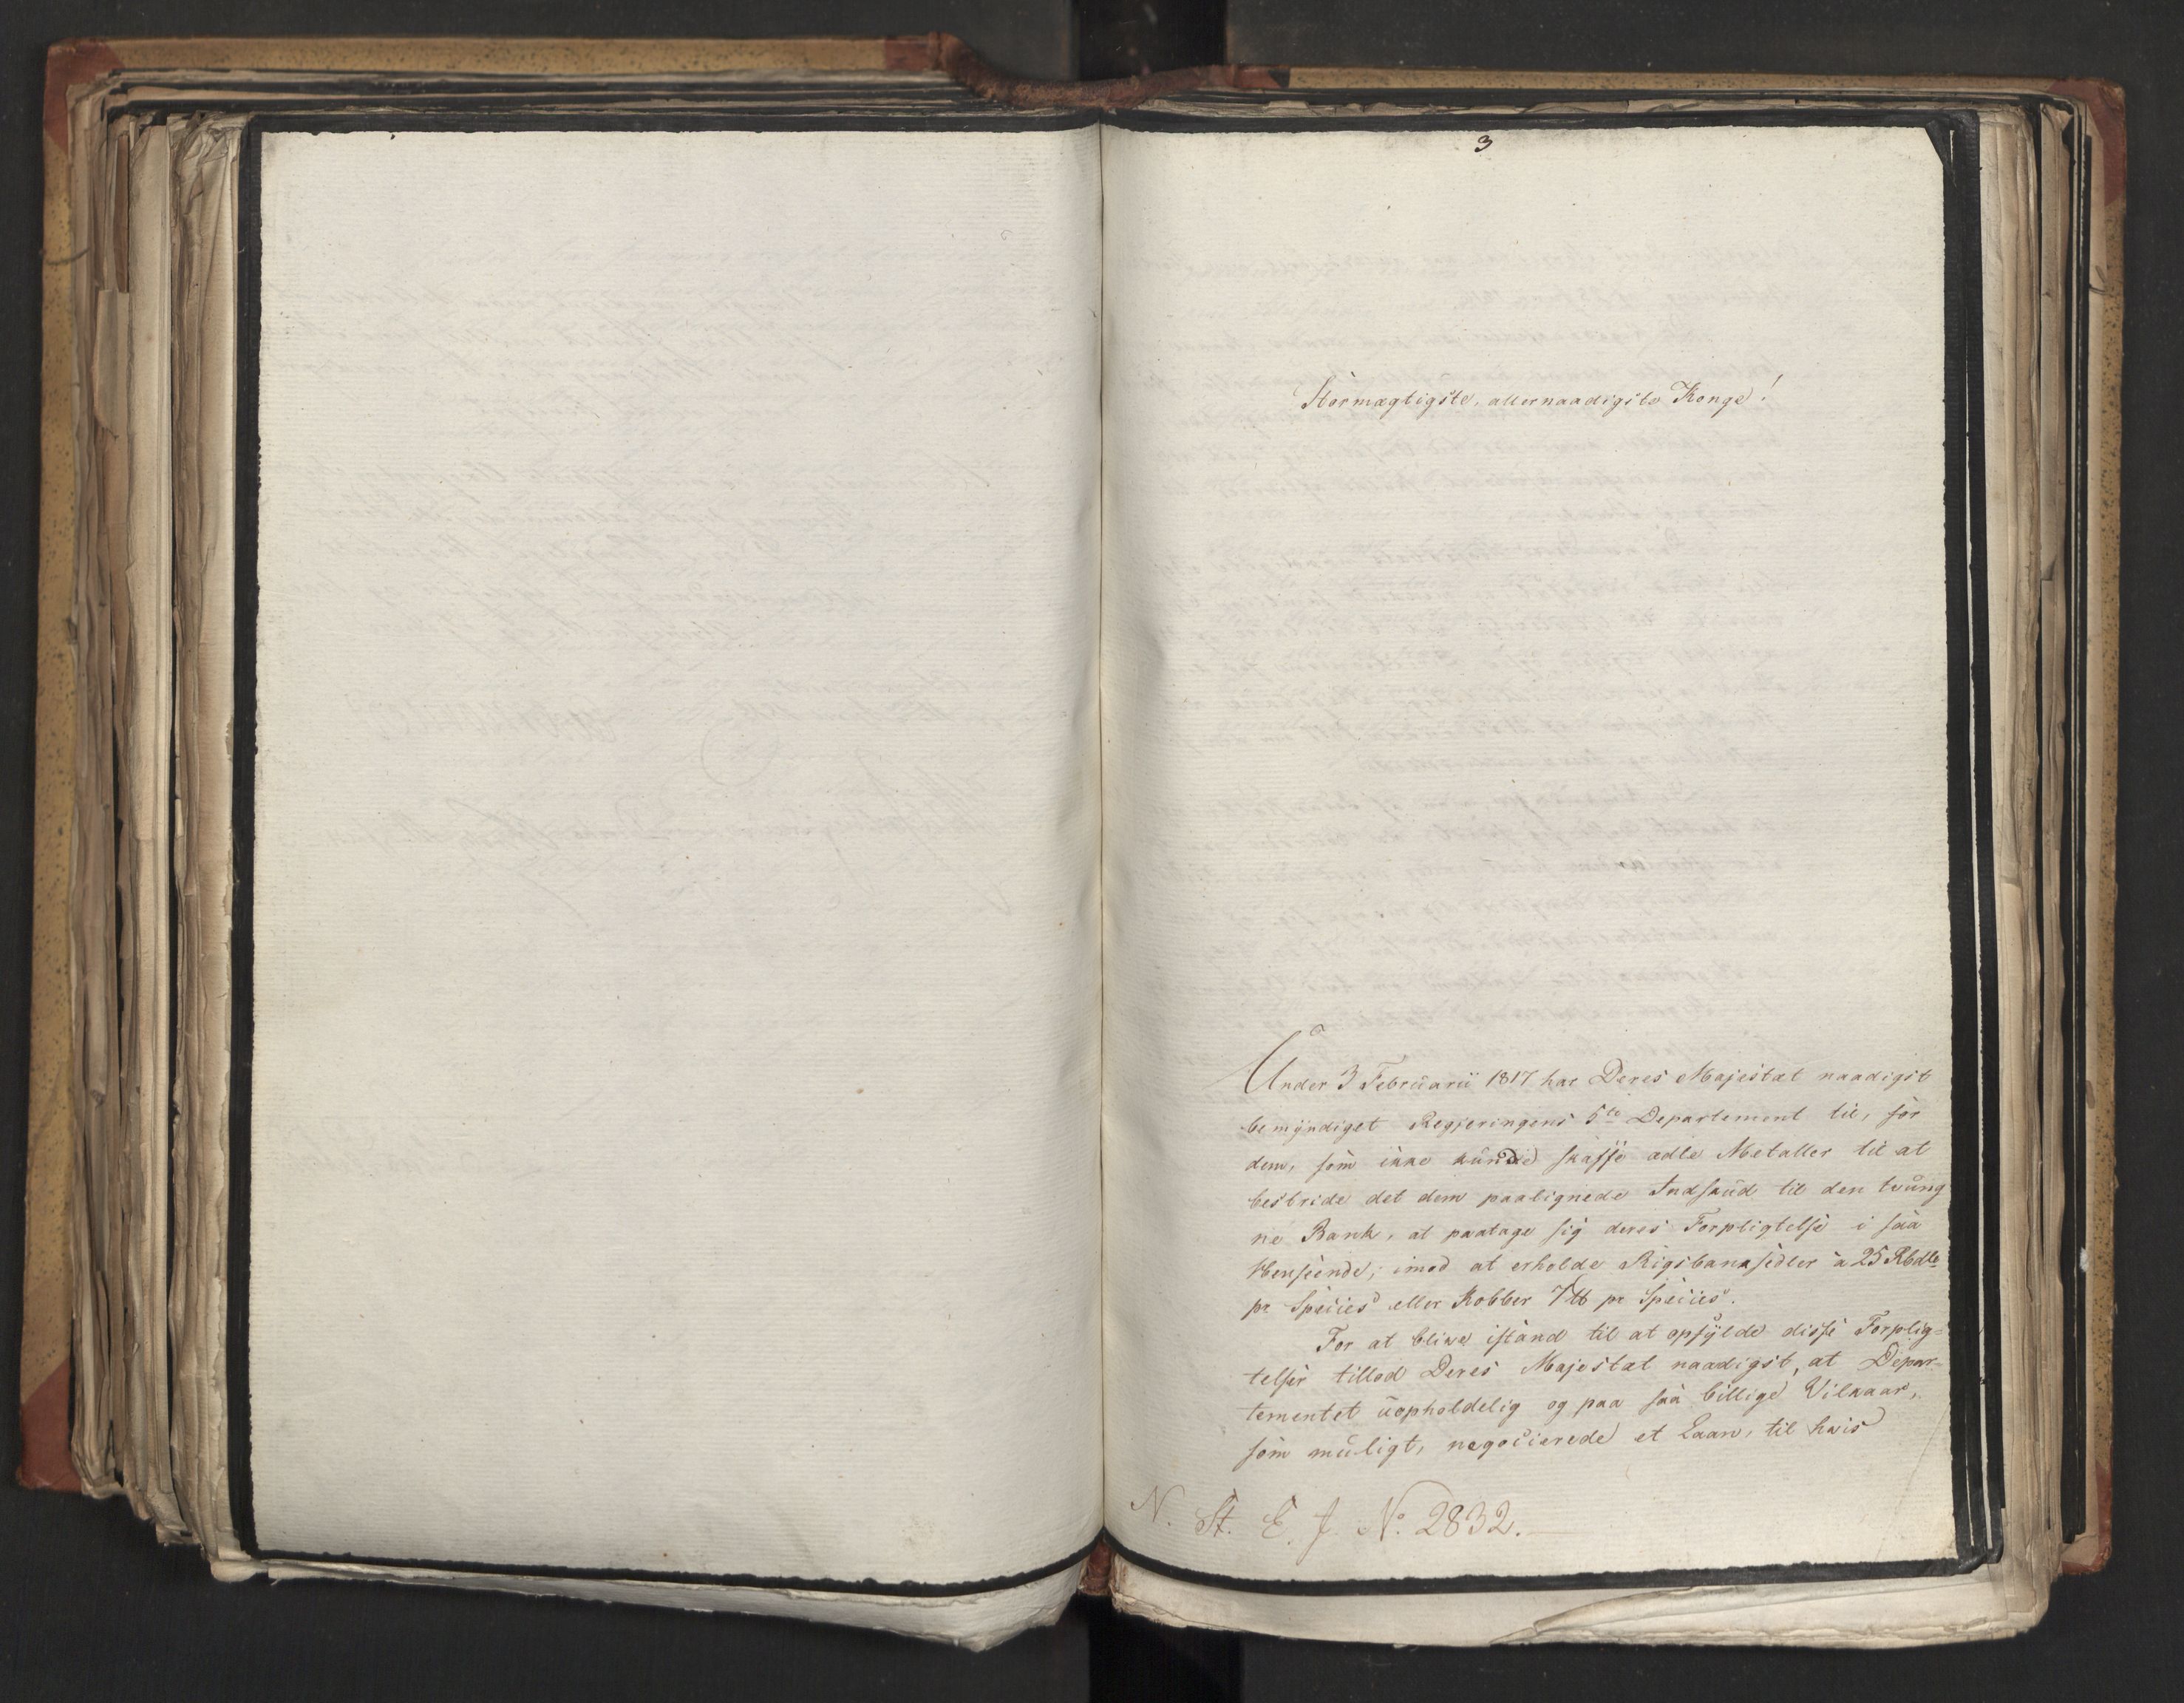 3
Stormægtigste, allernaadigste Konge!
Under 3 Februarii 1817 har Deres Majestæt naadigst
bemyndiget Regjeringens 5te Departement til, for
dem, som ikke kunde skaffe ædle Metaller til at
bestride det dem paalignede Indskud til den tvung
ne Bank, at paatage sig deres Forpligtelse i saa
Henseende, imod at erholde Rigsbanksedler à 25 Rbdlr
pr Species eller Kobber 7 ℔ pr Species.
For at blive istand til at opfylde disse Forplig-
telser tillod Deres Majestæt naadigst, at Depar-
tementet uopholdelig og paa saa billige Vilkaar,
som muligt, negocierede et Laan, til hvis
N. St. E. J. No. 2832.